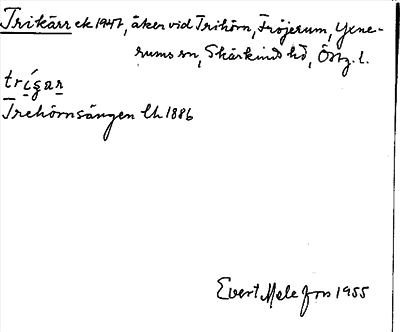 Trikärr ek 1947, åker vid Trihörn, Fröjerum, Yxne-
rums sn, Skärkind hd, Östg. l.
trígar
Trehörnsängen lh 1886
Evert Melefors 1955